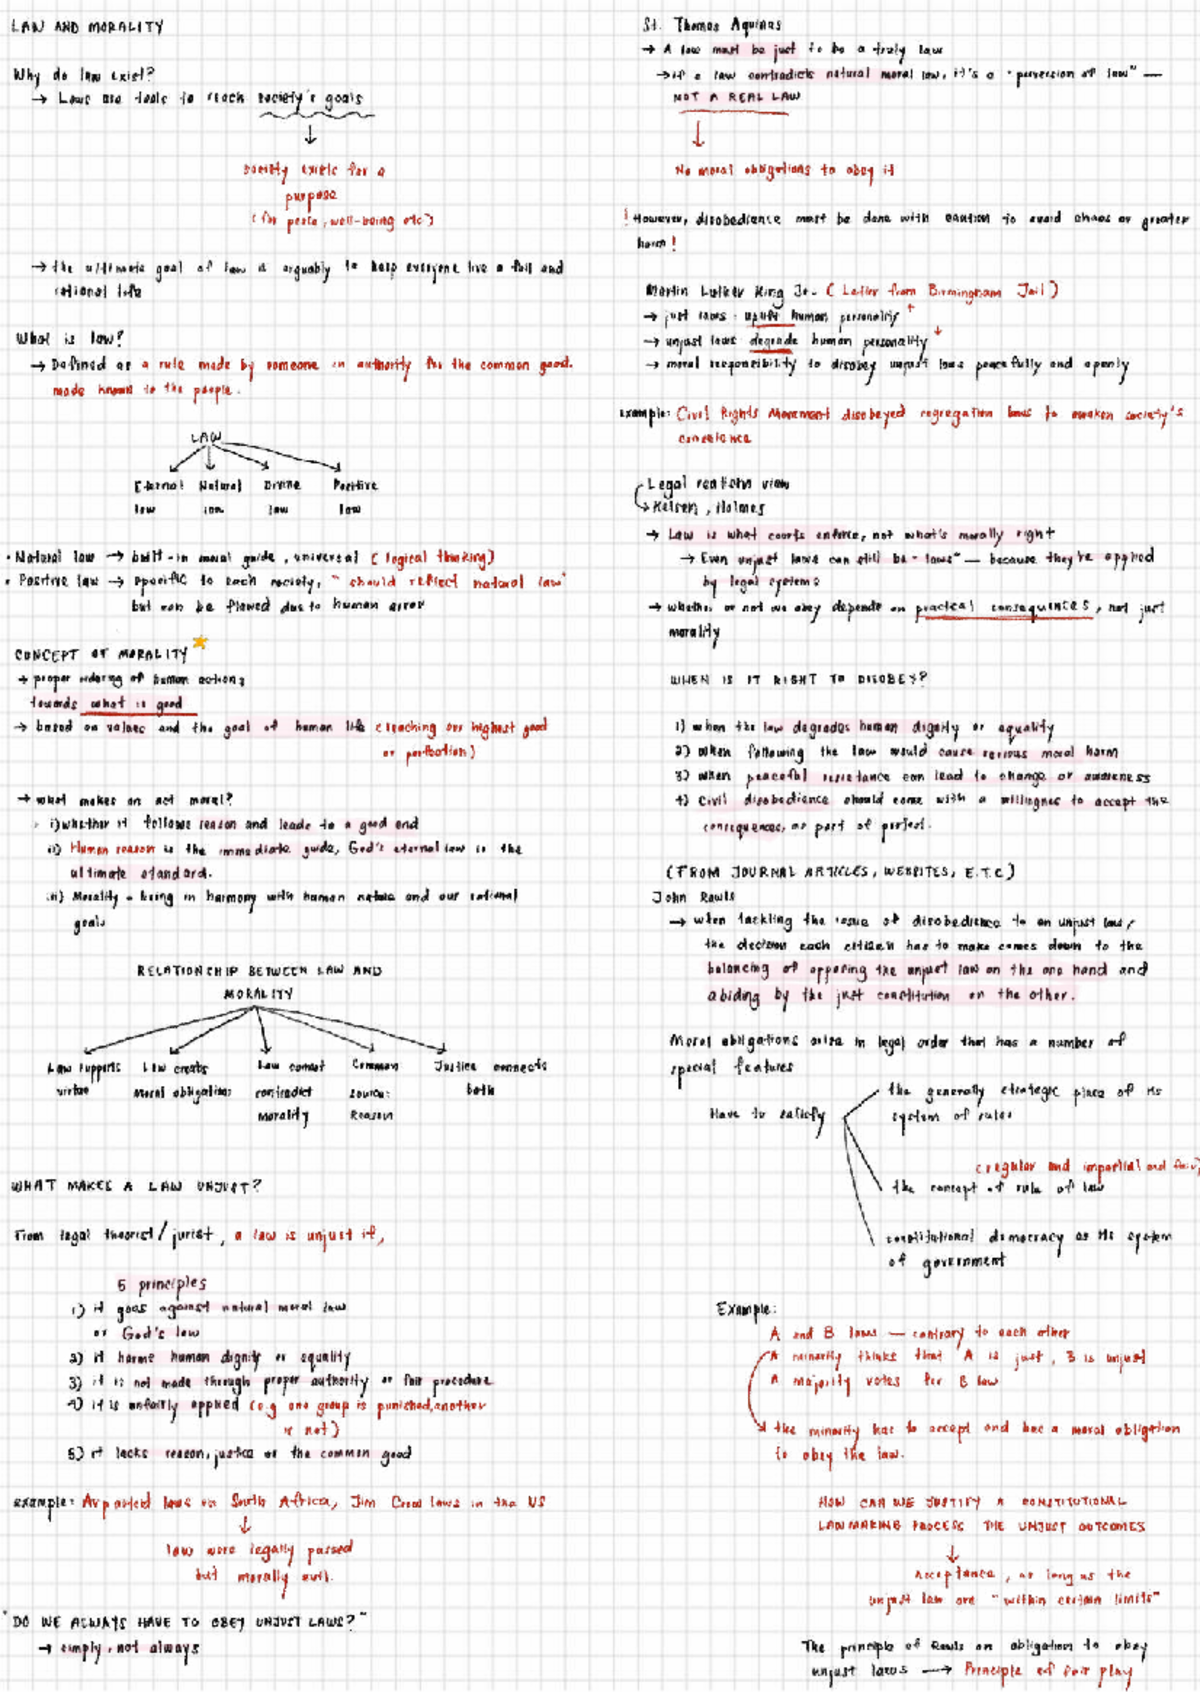 LAW AND MORALITY
Why do law exist?
→ Laws are tools to reach society's goals
↓
society exists for a
purpose
(for peace, well-being etc)
→ the ultimate goal of law is arguably to help everyone live a full and
rational life
What is law?
→ Defined as a rule made by someone in authority for the common good.
made known to the people.
LAW
Eternal law
Natural law
Divine law
Positive law
• Natural law → built-in moral guide, universal (logical thinking)
• Positive law → specific to each society, "should reflect natural law"
but can be flawed due to human error
CONCEPT OF MORALITY
→ proper ordering of human actions
towards what is good
→ based on values and the goal of human life (reaching our highest good
or perfection)
→ what makes an act moral?
i) whether it follows reason and leads to a good end
ii) Human reason is the immediate guide, God's eternal law is the
ultimate standard.
iii) Morality = being in harmony with human nature and our rational
goals
RELATIONSHIP BETWEEN LAW AND
MORALITY
Law supports virtue
Law creates Moral obligations
Law cannot contradict morality
Common source: Reason
Justice connects both
WHAT MAKES A LAW UNJUST?
From legal theorist/jurist, a law is unjust if,
5 principles
1) it goes against natural moral law
or God's law
2) it harms human dignity or equality
3) it is not made through proper authority or fair procedure
4) it is unfairly applied (e.g one group is punished, another
is not)
5) it lacks reason, justice or the common good
example: Arpateid laws in South Africa, Jim Crow laws in the US
↓
law were legally passed
but morally evil.
"DO WE ALWAYS HAVE TO OBEY UNJUST LAWS?"
→ simply, not always
St. Thomas Aquinas
→ A law must be just to be a truly law
→ if a law contradicts natural moral law, it's a "perversion of law" —
NOT A REAL LAW
↓
No moral obligations to obey it
! However, disobedience must be done with caution to avoid chaos or greater
harm!
Martin Luther King Jr. (Letter from Birmingham Jail)
→ just laws uplift human personality ↑
→ unjust laws degrade human personality ↓
→ moral responsibility to disobey unjust laws peacefully and openly
example: Civil Rights Movement disobeyed segregation laws to awaken society's
conscience
Legal realism view
→ Kelsen, Holmes
→ Law is what courts enforce, not what's morally right
→ Even unjust laws can still be "laws" — because they're applied
by legal systems
→ whether or not we obey depends on practical consequences, not just
morality
WHEN IS IT RIGHT TO DISOBEY?
1) when the law degrades human dignity or equality
2) when following the law would cause serious moral harm
3) when peaceful resistance can lead to change or awareness
4) Civil disobedience should come with a willingness to accept the
consequences, as part of protest.
(FROM JOURNAL ARTICLES, WEBSITES, E.T.C)
John Rawls
→ when tackling the issue of disobedience to an unjust law,
the decision each citizen has to make comes down to the
balancing of opposing the unjust law on the one hand and
abiding by the just constitution on the other.
Moral obligations arise in legal order that has a number of
special features
Have to satisfy
the generally strategic place of its
system of rules
(regular and impartial and fair)
the concept of rule of law
constitutional democracy as its system
of government
Example:
A and B laws — contrary to each other
A minority thinks that A is just, B is unjust
A majority votes for B law
→ the minority has to accept and has a moral obligation
to obey the law.
HOW CAN WE JUSTIFY A CONSTITUTIONAL
LAWMAKING PROCESS THE UNJUST OUTCOMES
↓
Acceptance, as long as the
unjust law are "within certain limits"
The principle of Rawls on obligation to obey
unjust laws → Principle of fair play